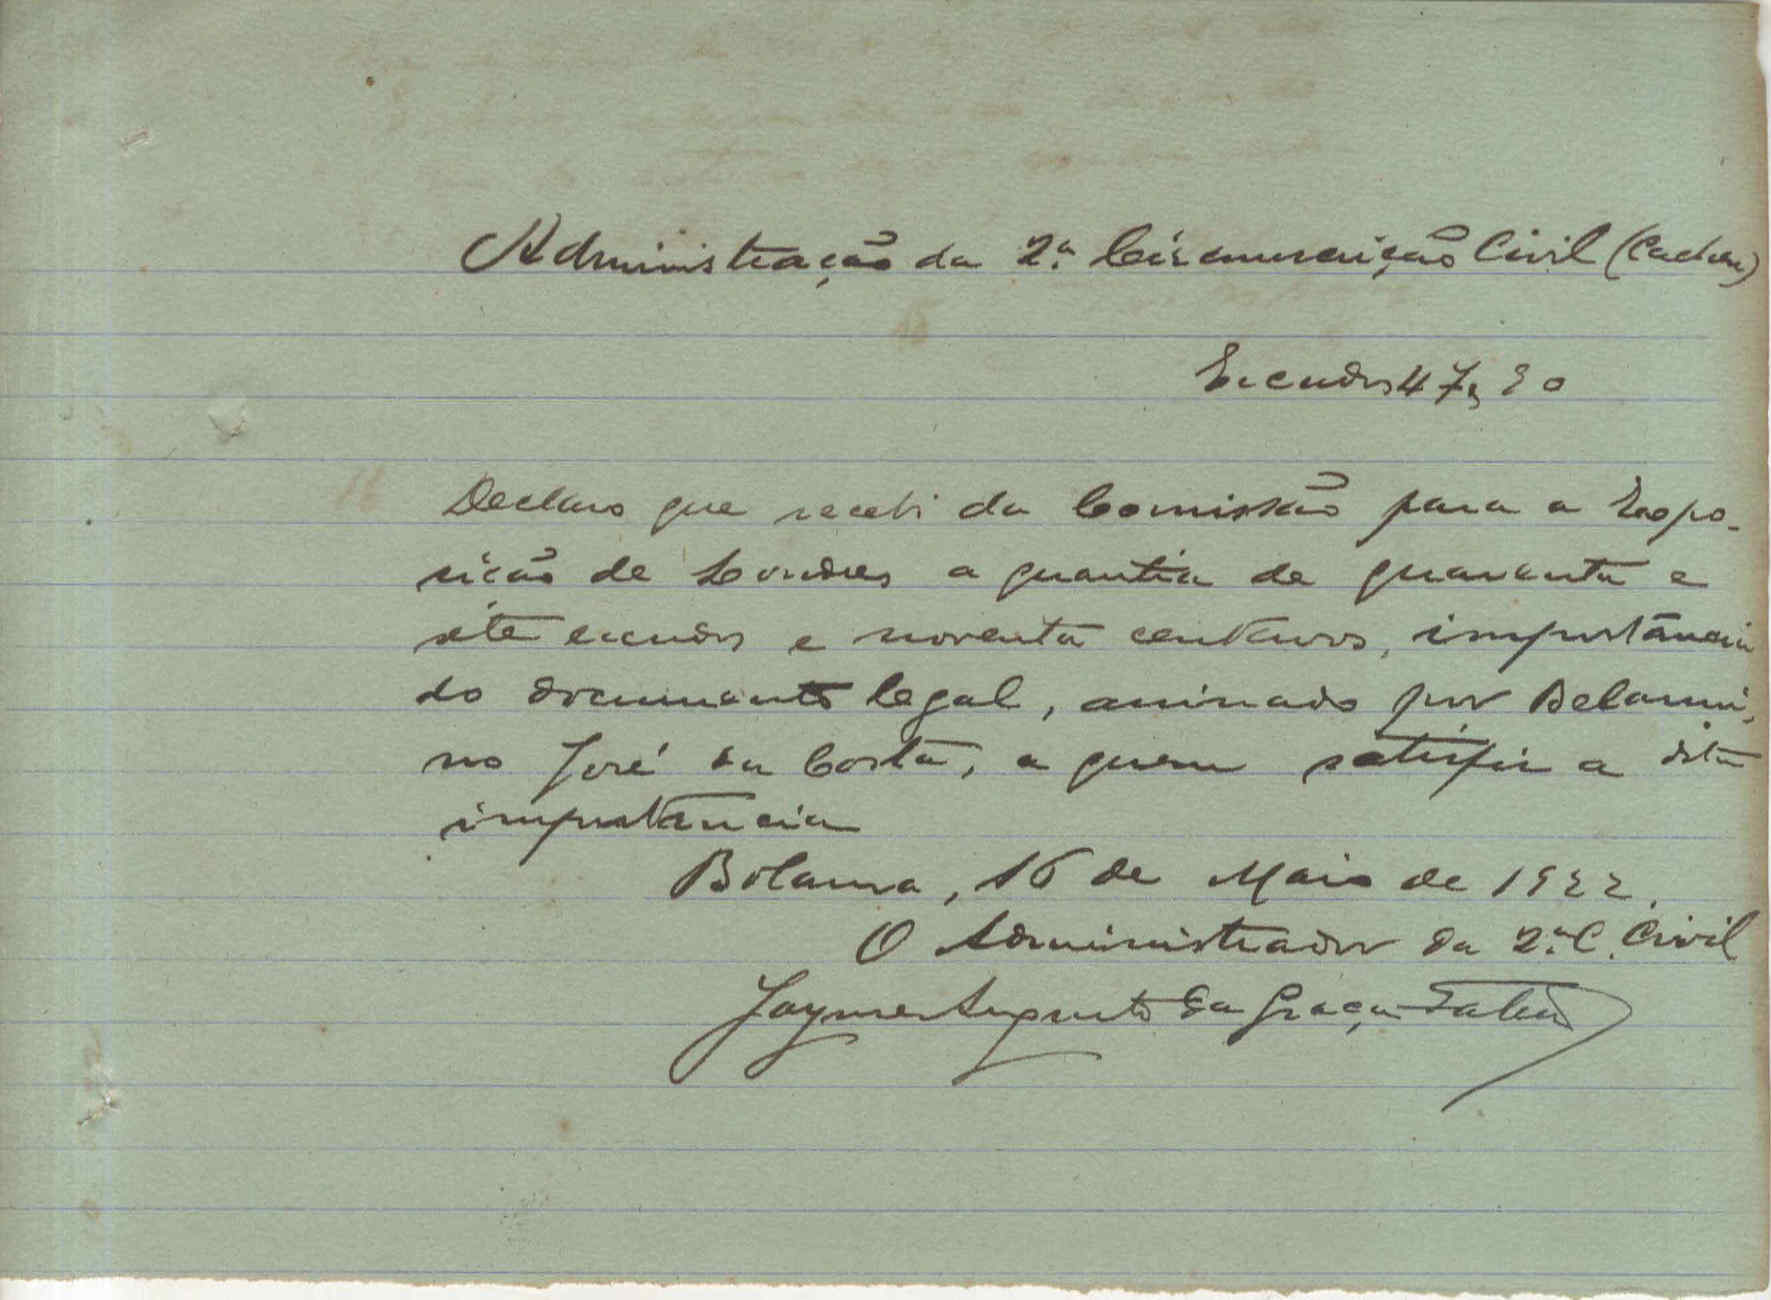 Administração da 2.ª Circunscrição Civil (Cacheu)
Escudos 47,90
Declaro que recebi da Comissão para a Expo-
sicão de Londres a quantia de quarenta e
sete escudos e noventa centavos, importância
do documento legal, assinado por Belarmi-
no José da Costa, a quem satisfiz a dita
importância
Bolama, 16 de Maio de 1922.
O Administrador da 2.ª C. Civil
Jayme Augusto da Graça Falcão